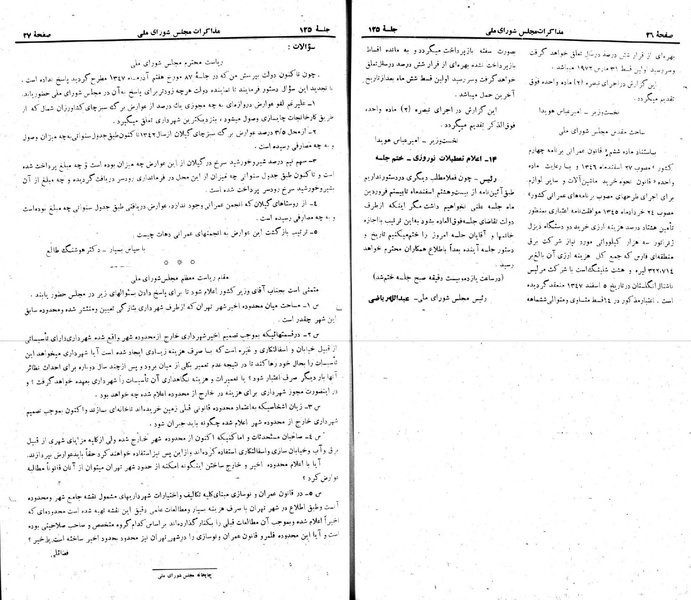 صفحهٔ ۳۶
مذاکرات مجلس شورای ملی
جلسهٔ ۱۳۵
بهره‌ای از قرار شش درصد در سال تعلق خواهد گرفت
و سررسید اولین قسط ۳۱ مارس ۱۹۷۲ میباشد.
این گزارش در اجرای تبصره (۲) ماده واحده فوق
الذکر تقدیم میگردد.
نخست‌وزیر - امیرعباس هویدا
ساحت مقدس مجلس شورای ملی
باستناد ماده ششم قانون عمرانی برنامه چهارم
کشور مصوب ۲۷ اسفندماه ۱۳۴۶ و با رعایت ماده
واحده قانون نحوه خرید ماشین‌آلات و سایر لوازم
برای اجرای طرحهای مصوب برنامه‌های عمرانی کشور
مصوب ۲۴ خردادماه ۱۳۴۵ موافقت‌نامه اعتباری بمنظور
تأمین هشتاد درصد هزینه ارزی خرید دو دستگاه دیزل
ژنراتور سه هزار کیلوواتی مورد نیاز شرکت برق
منطقه‌ای فارس که جمع کل هزینه ارزی آن بالغ بر
۳۲۲٬۷۱۴ لیره و هشت شلینگ است با شرکت مرلیس
ناشنال انگلستان در تاریخ ۵ اسفند ۱۳۴۷ منعقد گردیده
است. اعتبار مذکور در ۱۴ قسط متساوی و متوالی ششماهه
بصورت سفته بازپرداخت میگردد و به مانده اقساط
بازپرداخت نشده بهره‌ای از قرار شش درصد در سال تعلق
خواهد گرفت و سررسید اولین قسط شش ماه بعد از تاریخ
آخرین حمل میباشد.
این گزارش در اجرای تبصره (۲) ماده واحده
فوق‌الذکر تقدیم میگردد.
نخست‌وزیر - امیرعباس هویدا
۱۴- اعلام تعطیلات نوروزی - ختم جلسه
رئیس - چون فعلا مطلب دیگری در دستور نداریم
طبق آئین‌نامه از بیست و هشتم اسفندماه تا بیستم فروردین
ماه جلسه علنی نخواهیم داشت مگر اینکه از طرف
دولت تقاضای جلسه فوق‌العاده بشود. به این ترتیب با اجازه
خانمها و آقایان جلسه امروز را ختم میکنیم تاریخ و
دستور جلسه آینده بعداً باطلاع همکاران محترم خواهد
رسید.
(در ساعت یازده و بیست دقیقه صبح جلسه ختم شد)
رئیس مجلس شورای ملی - عبدالله ریاضی
جلسهٔ ۱۳۵
مذاکرات مجلس شورای ملی
صفحهٔ ۳۷
سؤالات :
ریاست محترم مجلس شورای ملی
چون تاکنون دولت بپرسش من که در جلسهٔ ۸۷ مورخ هفتم آذرماه ۱۳۴۷ مطرح گردید پاسخ نداده است .
با تجدید این سؤال دستور فرمایند تا نماینده دولت هرچه زودتر برای پاسخ به آن در مجلس شورای ملی حضور یابد.
۱- علیرغم لغو عوارض دروازه‌ای به چه مجوزی یک درصد از عوارض برگ سبز چای کشاورزان شمال که از
طریق کارخانجات چایسازی وصول میشود ، بنزدیکترین شهرداری تعلق میگیرد.
۲- از محل ۳/۵ درصد عوارض برگ سبز چای گیلان از سال ۱۳۴۲ تاکنون طبق جدول سنواتی چه میزان وصول
و به چه مصارفی رسیده است .
۳- سهم نیم درصد شیر و خورشید سرخ در گیلان از این عوارض به چه میزان است و چه مبلغ پرداخت شده
است و تاکنون طبق جدول سنواتی چه میزان از این محل در فرمانداری رودسر دریافت گردیده و چه مبلغ از آن
بشیر و خورشید سرخ رودسر پرداخت شده است.
۴- از روستاهای گیلان که انجمن عمرانی وجود ندارد، عوارض دریافتی طبق جدول سنواتی چه مبلغ بوده است
و به چه مصارفی رسیده است .
۵- ترتیب بازگشت این عوارض به انجمنهای عمرانی دهات چیست .
با سپاس بسیار - دکتر هوشنگ طالع
مقام ریاست معظم مجلس شورای ملی
متمنی است بجناب آقای وزیر کشور اعلام شود تا برای پاسخ دادن به سئوالهای زیر در مجلس حضور یابند .
س ۱- مساحت میان محدوده اخیر شهر تهران که از طرف شهرداری بتازگی تعیین و منتشر شده و محدوده سابق
این شهر چقدر است .
س ۲- در قسمتهائیکه بموجب تصمیم اخیر شهرداری خارج از محدوده شهر واقع شده شهرداری دارای تأسیساتی
از قبیل خیابان و اسفالتکاری و غیره است که با صرف هزینه زیادی ایجاد شده است آیا شهرداری میخواهد این
تأسیسات را بحال خود رها کند تا در نتیجه عدم تعمیر بکلی از میان برود و پس از چند سال دوباره برای احداث نظائر
آنها بار دیگر صرف اعتبار شود ؟ یا تعمیرات و هزینه نگاهداری آن تأسیسات را شهرداری بعهده خواهد گرفت ؟ و
در اینصورت مجوز شهرداری برای هزینه در خارج از محدوده اعلام شده چه خواهد بود .
س ۳- زیان اشخاصیکه به اعتماد محدوده قانونی قبلی زمین خریده‌اند تا خانه‌ای بسازند و اکنون بموجب تصمیم
شهرداری خارج از محدوده شهر اعلام شده چگونه باید جبران شود .
س ۴- صاحبان مستحدثات و اماکنیکه اکنون از محدوده شهر خارج شده ولی از کلیه مزایای شهری از قبیل
برق و آب و خیابان سازی و اسفالتکاری استفاده کرده‌اند و از این پس نیز استفاده خواهند کرد حقاً باید عوارض بپردازند.
آیا با اعلام محدوده اخیر و خارج ساختن اینگونه امکنه از حدود شهر تهران میتوان از آنان قانوناً مطالبه
عوارض کرد ؟
س ۵- در قانون عمران و نوسازی مبنای کلیه تکالیف و اختیارات شهرداریهای مشمول نقشه جامع شهر و محدوده
آنست و طبق اطلاع در شهر تهران با صرف هزینه بسیار و مطالعات علمی دقیق این نقشه تهیه شده است محدوده‌ای که
اخیراً اعلام شده و بموجب آن مطالعات قبلی را بکنار گذارده‌اند بر اساس کدام گروه متخصص و صاحب صلاحیتی بوده
است و آیا این محدوده قلمرو قانون عمران و نوسازی را در شهر تهران نیز محدود بحدود اخیر ساخته است یا خیر ؟
فضائلی
چاپخانه مجلس شورای ملی